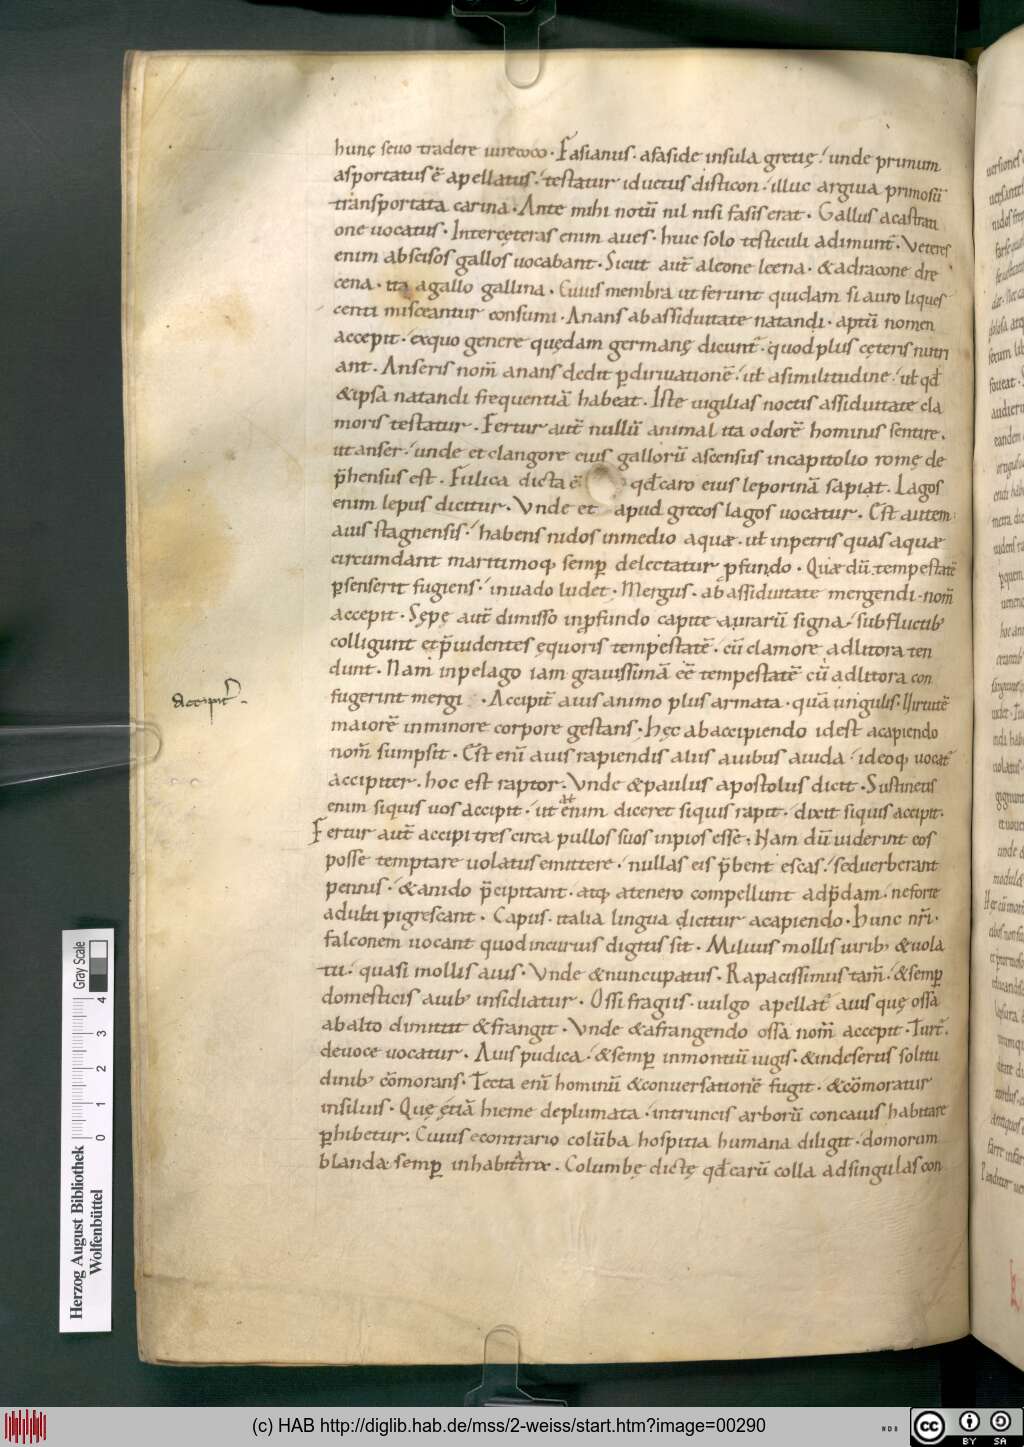 hunc seuo tradere uireꝏꝏ · Fasianus · afaside insula gretię ·/ unde primum
asportatus ē apellatus ·/ testatur iductus disticon ·/ illuc argiua primosū
transportata carina · Ante mihi notū nil nisi fasis erat · Gallus acastrati
one uocatus · Intercęteras enim aues · huic solo testiculi adimunt̄ · Veteres
enim abscisos gallos uocabant · Sicut aut̄ aleone leena · &adracone dre
cena · ita agallo gallina · Cuius membra ut ferunt quidam si auro liques
centi misceantur consumi · Anans abassiduitate natandi · aptū nomen
accepit · exquo genere quędam germanę dicunt̄ · quod plus cęteris nutri
ant · Anseris nom̄ anans dedit p̱diriuationē ·/ uł asimilitudine ·/ uł qđ
&ipsa natandi frequentiā habeat · Iste uigilias noctis assiduitate cla
moris testatur · Fertur aut̄ nullū animal ita odorē hominis sentire ·
ut anser ·/ unde et clangore eius gallorū ascensus incapitolio romę de
p̄hensus est · Fulica dicta ē qđ caro eius leporinā sapiat · Lagos
enim lepus dicitur · Vnde et apud grecos lagos uocatur · Est autem
auis stagnensis ·/ habens nidos inmedio aquæ · uł inpetris quas aquæ
circumdant maritimoq; semp̱ delectatur p̱fundo · Quæ dū tempestatē
p̱senserit fugiens ·/ inuado ludet · Mergus · ab assiduitate mergendi · nom̄
accepit · Sępę aut̄ dimisso inp̱fundo capite aurarū signa · subfluctib;
colligunt etp̄uidentes ęquoris tempestatē · cū clamore adlitora ten
dunt · Nam inpelago iam grauissimā eē tempestatē cū adlitora con
fugerint mergi · Accipit̄ auis animo plus armata · quā ungulis · Uirtutē
maiorē inminore corpore gestans · Hęc abaccipiendo idest acapiendo
nom̄ sumpsit · Est enī auis rapiendis aliis auibus auida · ideoq; uocat̄
accipiter · hoc est raptor · Vnde &paulus apostolus dicit · Sustinetis
enim siquis uos accipit · ut enim diceret siquis rapit · dixit siquis accipit ·
Fertur aut̄ accipitres circa pullos suos inpios esse · Nam dū uiderint eos
posse temptare uolatus emittere ·/ nullas eis p̄bent escas ·/ seduerberant
pennis ·/ &anido p̄cipitant · atq; atenero compellunt adp̄dam ·/ neforte
adulti pigrescant · Capus · italia lingua dicitur acapiendo · Hunc nr̄i ·
falconem uocant quodincuruis digitis sit · Miluus mollis uirib; &uola
tu ·/ quasi mollis auis · Vnde &nuncupatus · Rapacissimus tam̄ ·/ &semp̱
domesticis auib; insidiatur · Ossifragus · uulgo apellat̄ auis quę ossa
abalto dimittit &frangit · Vnde &afrangendo ossa nom̄ accepit · Turt̄ ·
deuoce uocatur · Auis pudica ·/ &semp̱ inmontiū iugis · &indesertis solitu
dinib; cōmorans · Tecta enī hominū &conuersationē fugit · &cōmoratur
insiluis · Quę ętiā hieme deplumata ·/ intruncis arborū concauis habitare
p̱hibetur · Cuius econtrario colūba hospitia humana diligit · domorum
blandæ semp̱ inhabitatrix · Columbę dictę qđ earū colla adsingulas con
Accipit̄ ·
Gray Scale
4 3 2 1 0
Herzog August Bibliothek
Wolfenbüttel
(c) HAB http://diglib.hab.de/mss/2-weiss/start.htm?image=00290
cc BY SA